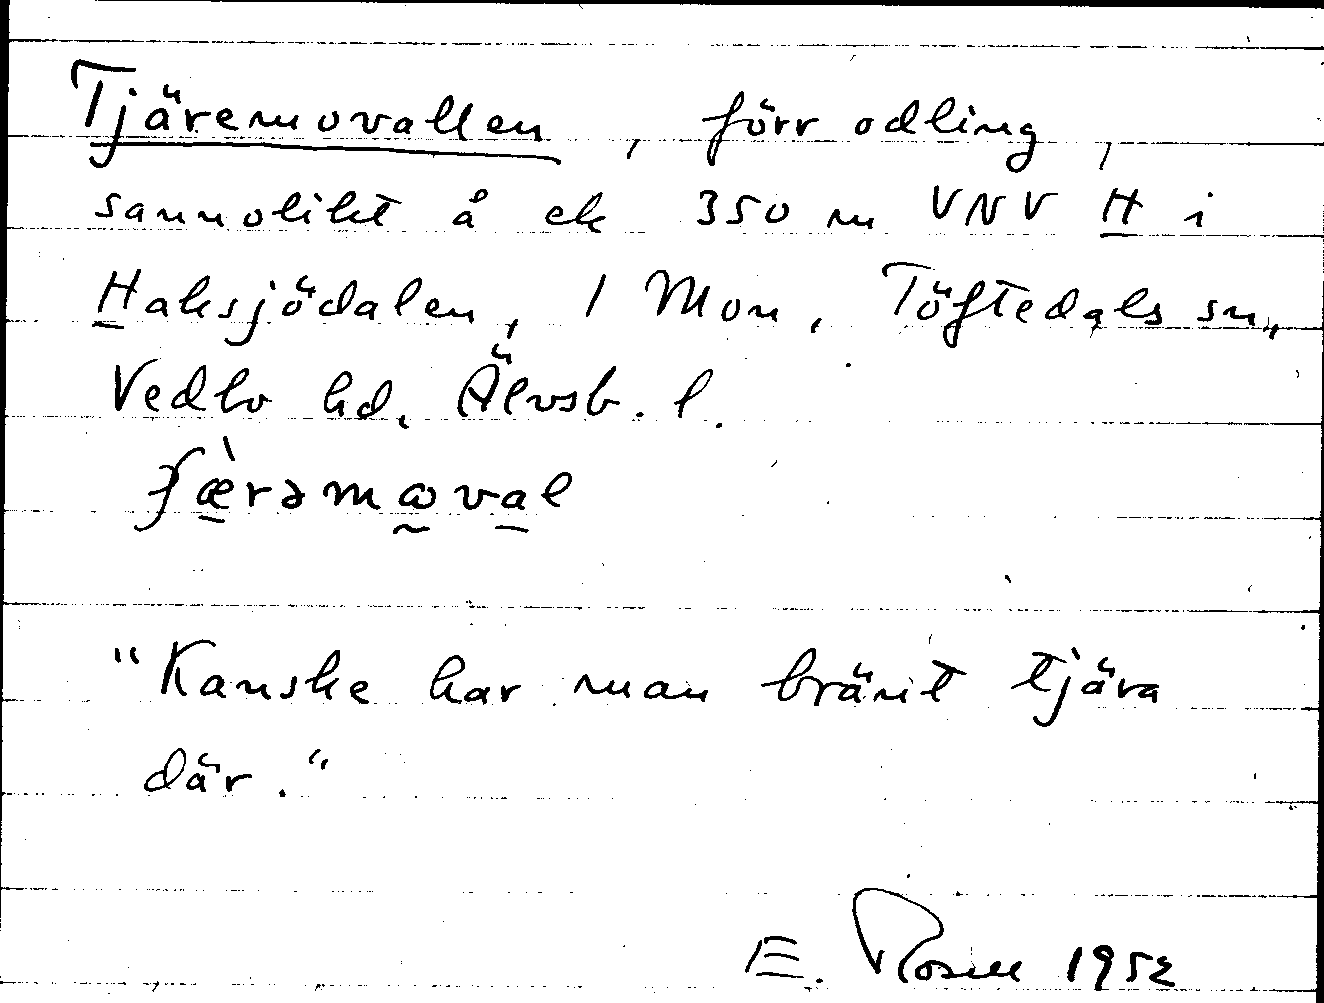 Tjäremovallen, förr odling,
sannolikt å ek 350 m VNV H i
Haksjödalen, 1 Mon, Töftedals sn,
Vedbo hd, Älvsb. l.
"Kanske har man bränt tjära
där."
E. Rosell 1952